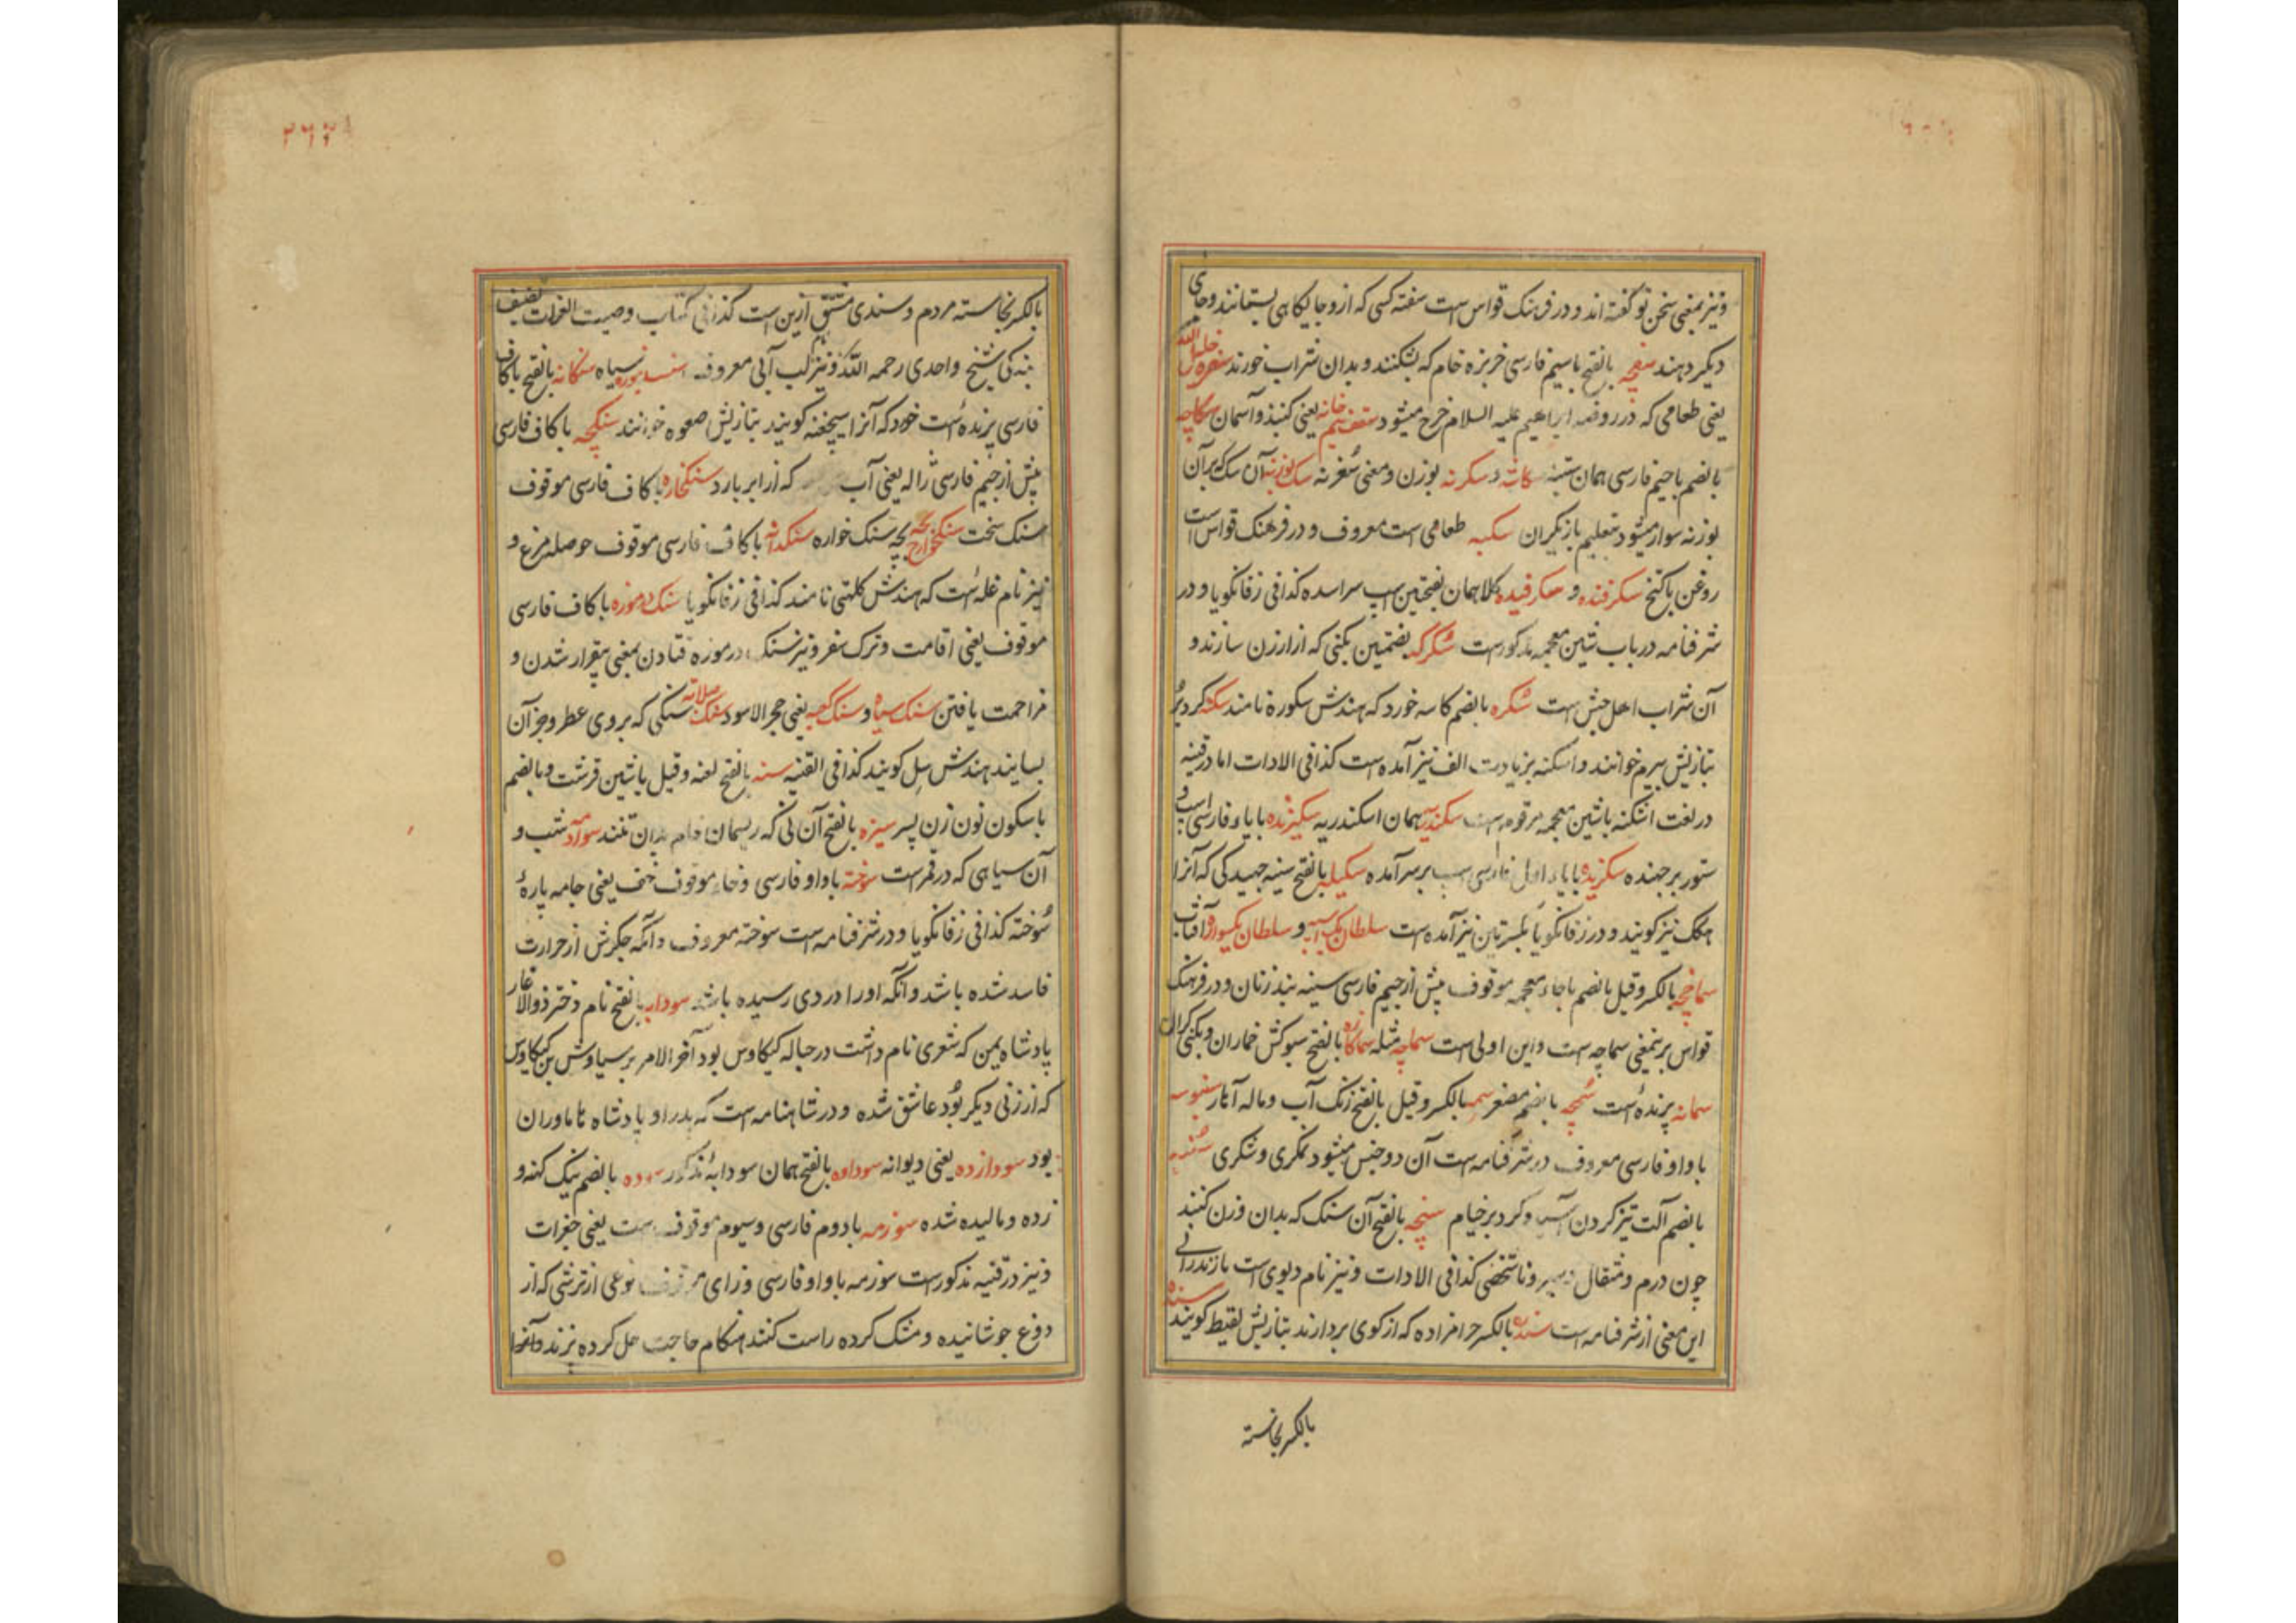 ونیز بمعنی سخن نو گفته اند و در فرهنک قواس است سفته کسی که ازو جایکاهی بستانند و جای
دیکر دهند سفچه بالفتح با سیم فارسی خربزه خام که بشکنند و بدان شراب خورند سفره خلیل الله
یعنی طعامی که در روضه ابراهیم علیه السلام خرج میشود سقف نیم خانه یعنی کنبذ و آسمان سکاچه
بالضم با جیم فارسی همان ستنبه سکاشه و سکرنه بوزن و معنی سغرنه سک بوزنه آن سک که بر آن
بوزنه سوار میشود بتعلیم بازیکران سکبه طعامی است معروف و در فرهنک قواس است
روغن باکنج سکرفنده و سکرفیده کلاهمان بفتحتین اسپ سراسده کذا فی زفانکویا و در
شرفنامه در باب شین معجمه مذکور است سکرکه بضمتین بکنی که از ارزن سازند و
آن شراب اهل حبش است سکره بالضم کاسه خورد که هندش سکوره نامند سکنه کرد بر
بتازیش بیرم خوانند و اسکنه بزیادت الف نیز آمده است کذا فی الادات اما در قنیه
در لغت اشکنه باشین معجمه مرقوم است سکندریه همان اسکندریه سکیزنده با یاء فارسی اسپ و
ستور برجهنده سکزیده با یاء اول فارسی اسپ برسر آمده سکیله بالفتح سینه جهیدکی که آنرا
هکک نیز کویند و در زفانکویا بکسرتین نیز آمده است سلطان یک اسبه و سلطان یکسواره آفتاب
سماخچه بالکسر و قیل بالضم با خاء معجمه موقوف پیش از جیم فارسی سینه بند زنان و در فرهنک
قواس برینمعنی سماچه است و این اولی است سماچه مثله سماکاره بالفتح سبوکش خماران و بکنی کران
سمانه پرنده است سمچه بالضم مصغر سم سمه بالکسر و قیل بالفتح زنک آب و ماله آهار سنبوسه
با واو فارسی معروف در شرفنامه است آن دو جنس میشود نمکری و شکری
بالضم آلت تیز کردن آسیا و کرد بر خیام سنجه بالفتح آن سنک که بدان وزن کنند
چون درم و مثقال و سیر کذا فی الادات و نیز نام دیوی است مازندرانی
این معنی از شرفنامه است سنده بالکسر حرامزاده که از کوی بردارند بتازیش لقیط کویند سنده
بالکسر نجاسته
۲۶۲
بالکسر نجاسته مردم و سندی مشتق ازین است کذا فی کتاب وصیت العزات تصنیف
بندکی شیخ واحدی رحمه الله و نیز لب آبی معروف سیاه سنکانه بالفتح با کاف
فارسی پرنده است خود که آنرا سیچغنه کویند بتازیش صعوه خوانند سنکچه با کاف فارسی
پیش از جیم فارسی ژاله یعنی آب که از ابر بارد سنکخاره با کاف فارسی موقوف
سنک سخت سنکخوارچه بچه سنک خواره سنکدانه با کاف فارسی موقوف حوصله مرغ و
نیز نام غله است که هندش کلتهی نامند کذا فی زفانکویا سنک در موزه با کاف فارسی
موقوف یعنی اقامت و ترک سفر و نیز سنک در موزه فتادن بمعنی بیقرار شدن و
مزاحمت یافتن سنک سیاه و سنک کعبه یعنی حجر الاسود سنک صلایه سنکی که بروی عطر و جز آن
بسایند هندش سل کویند کذا فی القنیه سنه بالفتح لعنه و قیل باشین قرشت و بالضم
با سکون نون زن پسر سیزه بالفتح آن نی که ریسمان خام بدان تنند سوآمه شب و
آن سیاهی که در قمر است سوخته با واو فارسی و خاء موقوف خف یعنی جامه پاره
سوخته کذا فی زفانکویا و در شرفنامه است سوخته معروف و آنکه جکرش از حرارت
فاسد شده باشد و آنکه اورا دردی رسیده باشد سودابه بالفتح نام دختر ذوالاغار
پادشاه یمن که شعری نام داشت در حباله کیکاوس بود آخر الامر بر سیاوش بن کیکاوس
که از زنی دیکر بود عاشق شده و در شاهنامه است که پدر او پادشاه هاماوران
بود سودازده یعنی دیوانه سوداوه بالفتح همان سودابه مذکور سوده بالضم نیک کهنه و
زده و مالیده شده سوزمه با دوم فارسی و سیوم موقوف است یعنی جغرات
و نیز در قنیه مذکور است سوزمه با واو فارسی و زای موقوف نوعی از ترشی که از
دوغ جوشانیده و مشک کرده راست کنند هنکام حاجت حل کرده برند و آنرا